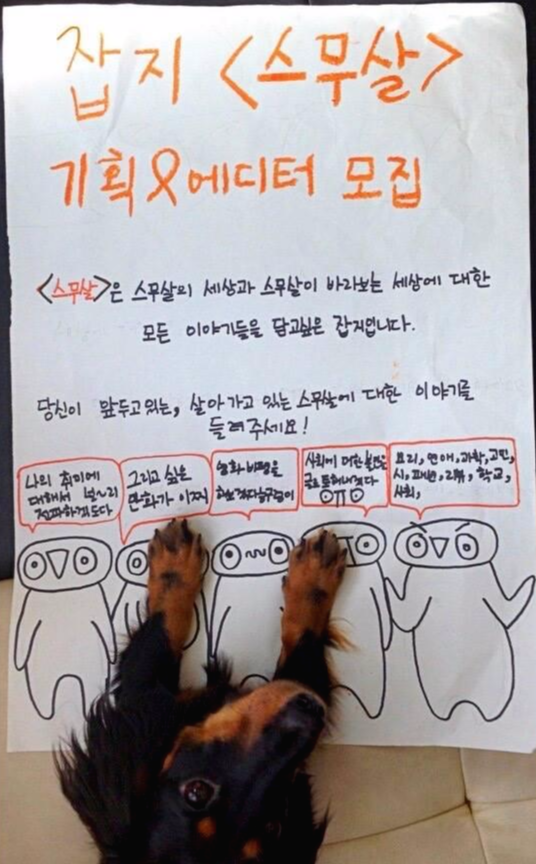 잡지 <스무살>
기획&에디터 모집
<스무살>은 스무살의 세상과 스무살이 바라보는 세상에 대한
모든 이야기들을 담고싶은 잡지입니다.
당신이 앞두고있는, 살아가고 있는 스무살에 대한 이야기를
들려주세요!
나의 취미에
대해서 널~리
전파하겠도다
그리고 싶은
만화가 이찌
영화 비평을
사회에 대한 불만을
글로 통해내겠다
요리, 연애, 과학, 고민,
시, 패션, 리뷰, 학교,
사회,